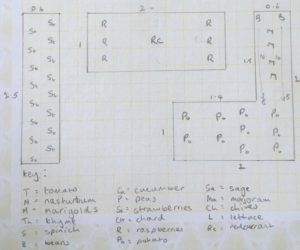 0.6 2 0.6
St St R R B B
St R Rc R M
St St 1 R R M
St 1.5 M 1.5 2
St St M
2.5 St 1.4
St St Po Po Po Po
St 1 Po
St St Po Po Po Po
St
St St 2
key:
T = tomato G = cucumber Sa = sage
N = nasturtium P = peas Ma = marjoram
M = marigolds St = strawberries Ch = chives
Th = thyme CH = chard L = lettuce
S = spinich R = raspberries Rc = redcurrant
B = beans Po = potato